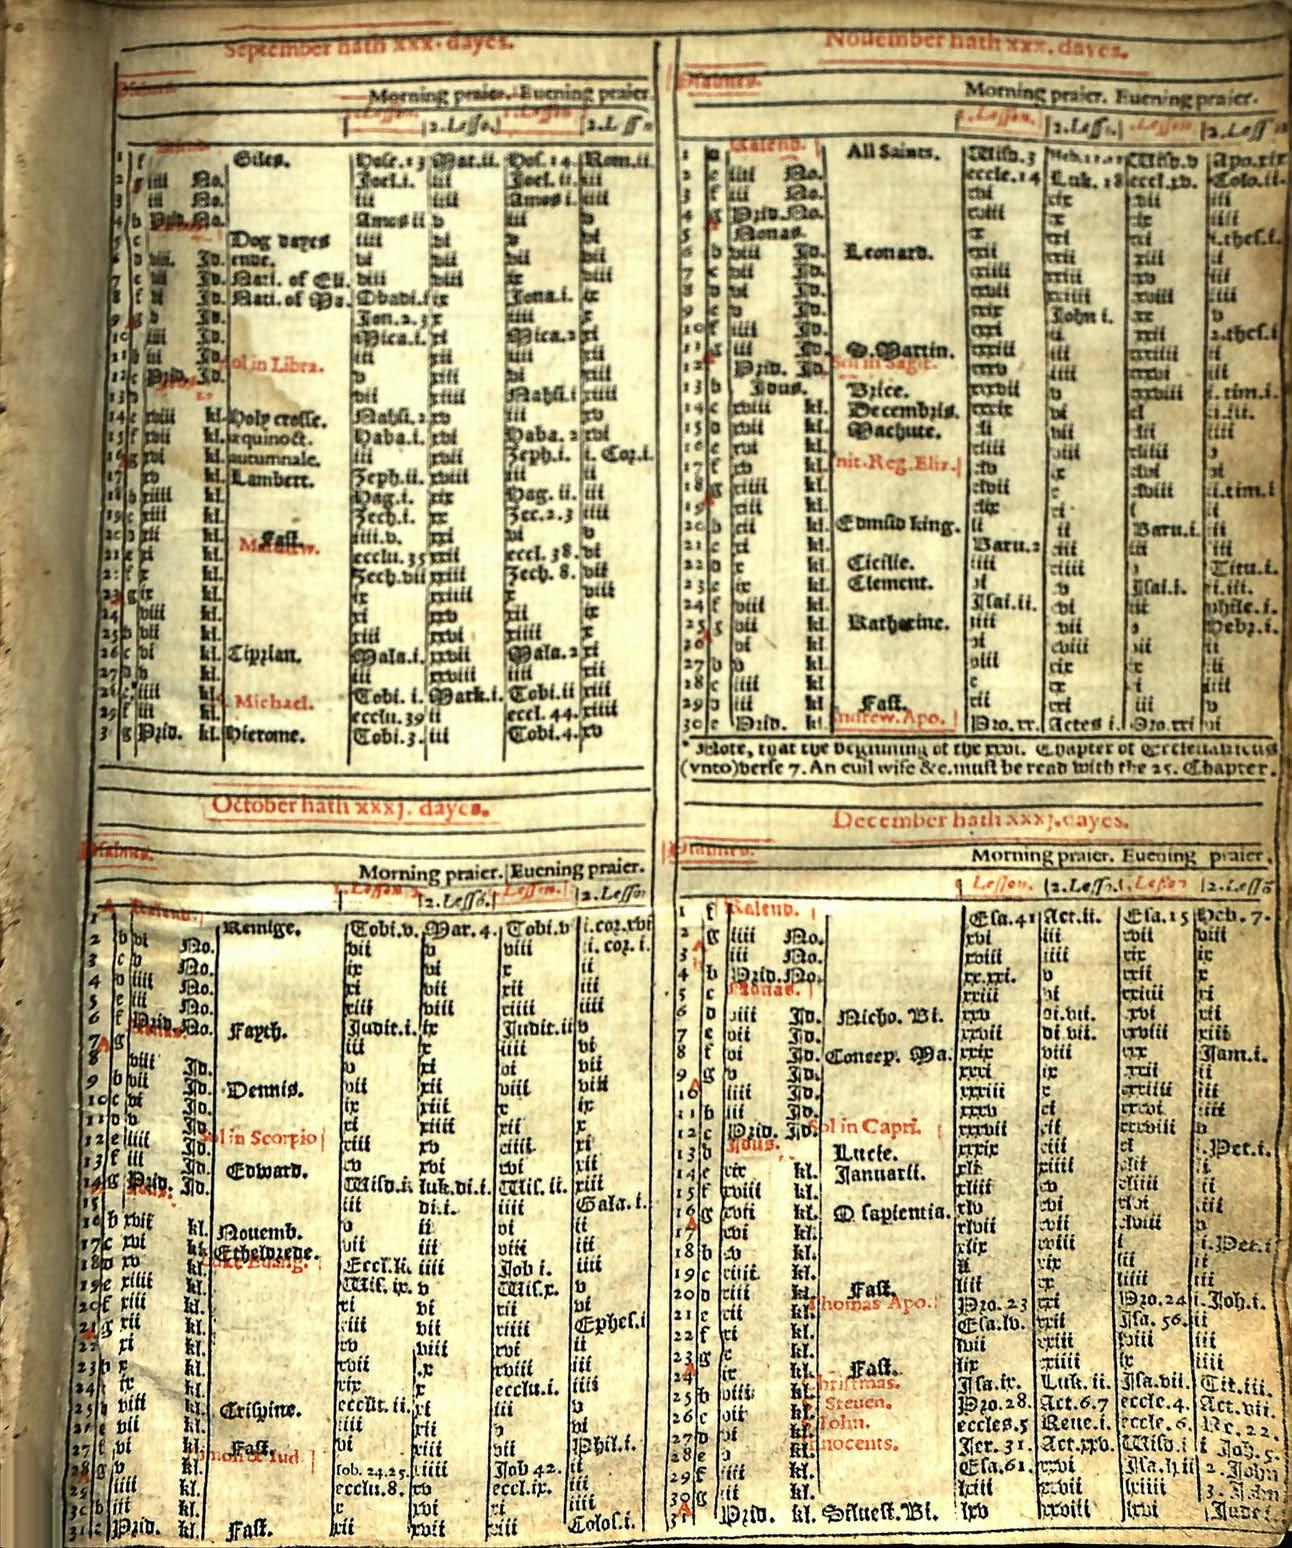 September hath xxx. dayes.
Morning praier. Euening praier
2.Lesso.
1 f Giles. Hose.13 Mat.ii. Hos.14. Rom.ii
2 g iiii No. Joel.i. iii Joel.ii. iii
3 iii No. iii iiii Amos i. iiii
4 b Prid. No. Amos ii v iii v
5 c Dog dayes iiii vi v vi
6 d viii. Id. ende. vi vii vii vii
7 e vii Id. Nati. of Eli. viii viii ix viii
8 f vi Id. Nati. of Ma. Obadi.i ix Jona.i. ix
9 g v Id. Jon.2.3 x iiii x
10 iiii Id. Mica.i. xi Mica.2 xi
11 b iii Id. Sol in Libra. iii xii iiii xii
12 c Prid. Id. v xiii vi xiii
13 vii xiiii Nahū.i xiiii
14 e xviii kl. Holy crosse. Nahū.2 xv iii xv
15 f xvii kl. æquinoct. Haba.i. xvi Haba.2 xvi
16 g xvi kl. autumnale. iii xvii Zeph.i. i. Cor.i.
17 xv kl. Lambert. Zeph.ii. xviii iii ii
18 b xiiii kl. Hag.i. xix Hag.ii. iii
19 c xiii kl. Zech.i. xx Zec.2.3 iiii
20 xii kl. Fast. iiii.v. xxi vi v
21 e xi kl. Mathew. ecclu.35 xxii eccl.38. vi
22 f x kl. Zech.vii xxiii Zech.8. vii
23 g ix kl. ix xxiiii x viii
24 viii kl. xi xxv xii ix
25 b vii kl. xiii xxvi xiiii x
26 c vi kl. Ciprian. Mala.i. xxvii Mala.2 xi
27 v kl. iii xxviii iiii xii
28 e iiii kl. Tobi. i. Mark.i. Tobi.ii xiii
29 f iii kl. Michael. ecclu.39 ii eccl.44. xiiii
30 g Prid. kl. Hierome. Tobi.3. iii Tobi.4. xv
October hath xxxj. dayes.
Morning praier. Euening praier.
1. Lesson 2.Lessō. Lesson. 2.Lesso
1 Kalend. Remige. Tobi.v. Mar.4. Tobi.v i.cor.xvi
2 b vi No. vii v viii i. cor. i.
3 c v No. ix vi x ii
4 d iiii No. xi vii xii iii
5 e iii No. xiii viii xiiii iiii
6 f Prid. No. Fayth. Judit.i. ix Judit.ii v
7 g iii x iiii vi
8 viii Id. v xi vi vii
9 b vii Id. Dennis. vii xii viii viii
10 c vi Id. ix xiii x ix
11 d v Id. xi xiiii xii x
12 e iiii Id. Sol in Scorpio xiii xv xiiii xi
13 f iii Id. Edward. xv xvi xvi xii
14 g Prid. Id. Wisd.i. luk.di.i. Wis.ii. xiii
15 iii di.i. iiii Gala.i.
16 b xvii kl. Nouemb. v ii vi ii
17 c xvi kl. Etheldrede. vii iii viii iii
18 d xv kl. Luke Euang. Eccl.li. iiii Job i. iiii
19 e xiiii kl. Wis. ix. v Wis.x. v
20 f xiii kl. xi vi xii vi
21 g xii kl. xiii vii xiiii Ephes.i
22 xi kl. xv viii xvi ii
23 b x kl. xvii ix xviii iii
24 ix kl. xix x ecclu.i. iiii
25 viii kl. Crispine. ecclu.ii. xi iii v
26 e vii kl. iiii xii v vi
27 f vi kl. Fast. vi xiii vii Phil.i.
28 g v kl. Simon & Iud. Iob.24.25. xiiii Job 42. ii
29 iiii kl. ecclu.8. xv eccl.ix. iii
30 b iii kl. x xvi xi iiii
31 c Prid. kl. Fast. xii xvii xiii Colos.i.
Nouember hath xxx. dayes.
Morning praier. Euening praier.
1.Lesson. 2.Lesso. Lesson 2.Lesso
1 Kalend. All Saints. Wisd.3 Wisd.v Apo.xix
2 e iiii No. eccle.14 Luk.18 eccl.xv. Colo.ii.
3 f iii No. xvi xix xvii iii
4 g Prid. No. xviii xx xix iiii
5 Nonas. xx xxi xxi i.thes.i.
6 b viii Id. Leonard. xxii xxii xxiii ii
7 c vii Id. xxiiii xxiii xxv iii
8 d vi Id. xxvii xxiiii xxviii iiii
9 v Id. xxix John i. xxx v
10 f iiii Id. xxxi ii xxxii 2.thes.i
11 g iii Id. S.Martin. xxxiii iii xxxiiii ii
12 Prid. Id. Sol in Sagit. xxxv iiii xxxvi iii
13 b Idus. Brice. xxxvii v xxxviii i.tim.i.
14 c xviii kl. Decembris. xxxix vi xl ii.iii.
15 d xvii kl. Machute. xli vii xlii iiii
16 e xvi kl. xliii viii xliiii v
17 f xv kl. Init.Reg.Eliz. xlv ix xlvi vi
18 g xiiii kl. xlvii x xlviii ii.tim.i
19 xiii kl. xlix xi l ii
20 b xii kl. Edmūd king. li xii Baru.i. iii
21 c xi kl. Baru.2 xiii iii iiii
22 d x kl. Cicilie. iiii xiiii v Titu.i.
23 e ix kl. Clement. vi xv Isai.i. ii.iii.
24 f viii kl. Isai.ii. xvi iii phile.i.
25 g vii kl. Katherine. iiii xvii v Hebr.i.
26 vi kl. vi xviii vii ii
27 b v kl. viii xix ix iii
28 c iiii kl. x xx xi iiii
29 d iii kl. Fast. xii xxi xiii v
30 e Prid. kl. Andrew. Apo. Pro.xx. Actes i. Pro.xxi vi
* Note, that the beginning of the xxvi. Chapter of Ecclesiasticus
(vnto) verse 7. An euil wife &c. must be read with the 25. Chapter.
December hath xxxj. dayes.
Morning praier. Euening praier.
Lesson. 2.Lesso. Lesson 2.Lessō
1 f Kalend. Esa.41 Act.ii. Esa.15 Heb. 7.
2 g iiii No. xvi iii xvii viii
3 iii No. xviii iiii xix ix
4 b Prid. No. xx.xxi. v xxii x
5 c Nonas. xxiii vi xxiiii xi
6 d viii Id. Nicho. Bi. xxv di.vii. xxvi xii
7 e vii Id. xxvii di vii. xxviii xiii
8 f vi Id. Concep. Ma. xxix viii xxx Jam.i.
9 g v Id. xxxi ix xxxii ii
10 iiii Id. xxxiii x xxxiiii iii
11 b iii Id. xxxv xi xxxvi iiii
12 c Prid. Id. Sol in Capri. xxxvii xii xxxviii v
13 Idus. Lucie. xxxix xiii xl i.Pet.i.
14 e xix kl. Januarii. xli xiiii xlii ii
15 f xviii kl. xliii xv xliiii iii
16 g xvii kl. O sapientia. xlv xvi xlvi iiii
17 xvi kl. xlvii xvii xlviii v
18 b xv kl. xlix xviii l ii.Pet.i
19 c xiiii kl. li xix lii ii
20 d xiii kl. Fast. liii xx liiii iii
21 e xii kl. Thomas Apo. Pro.23 xxi Pro.24 i.Joh.i.
22 f xi kl. Esa.lv. xxii Isa.56. ii
23 g x kl. lvii xxiii lviii iii
24 ix kl. Fast. lix xxiiii lx iiii
25 b viii kl. Christmas. Isa.ix. Luk.ii. Isa.vii. Tit.iii.
26 c vii kl. Steuen. Pro.28. Act.6.7 eccle.4. Act.vii.
27 d vi kl. Iohn. eccles.5 Reue.i. eccle.6. Re.22.
28 e v kl. Innocents. Jer. 31. Act.xxv. Wisd.i i Joh.5.
29 f iiii kl. Esa.61. xxvi Isa.lxii 2. John
30 g iii kl. lxiii xxvii lxiiii 3. John
31 Prid. kl. Siluest. Bi. lxv xxviii lxvi Jude i.